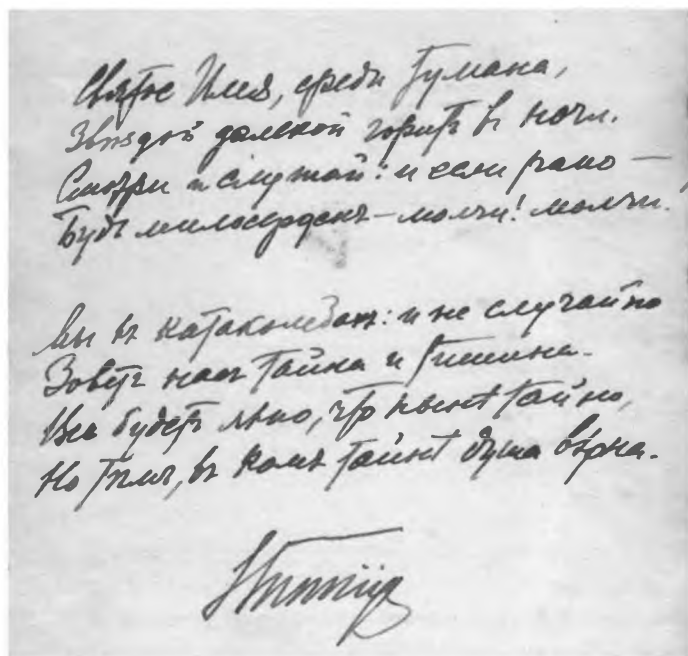 Святое Имя, среди тумана,
Звѣздой далекой горитъ въ ночи.
Смотри и слушай: и если рано —
Будь милосерденъ — молчи! молчи.
Мы въ катакомбахъ: и не случайно
Зоветъ насъ тайна и тишина.
Все будетъ явно, что нынѣ тайно,
Но тѣмъ, въ комъ тайнѣ душа вѣрна.
Гиппіус